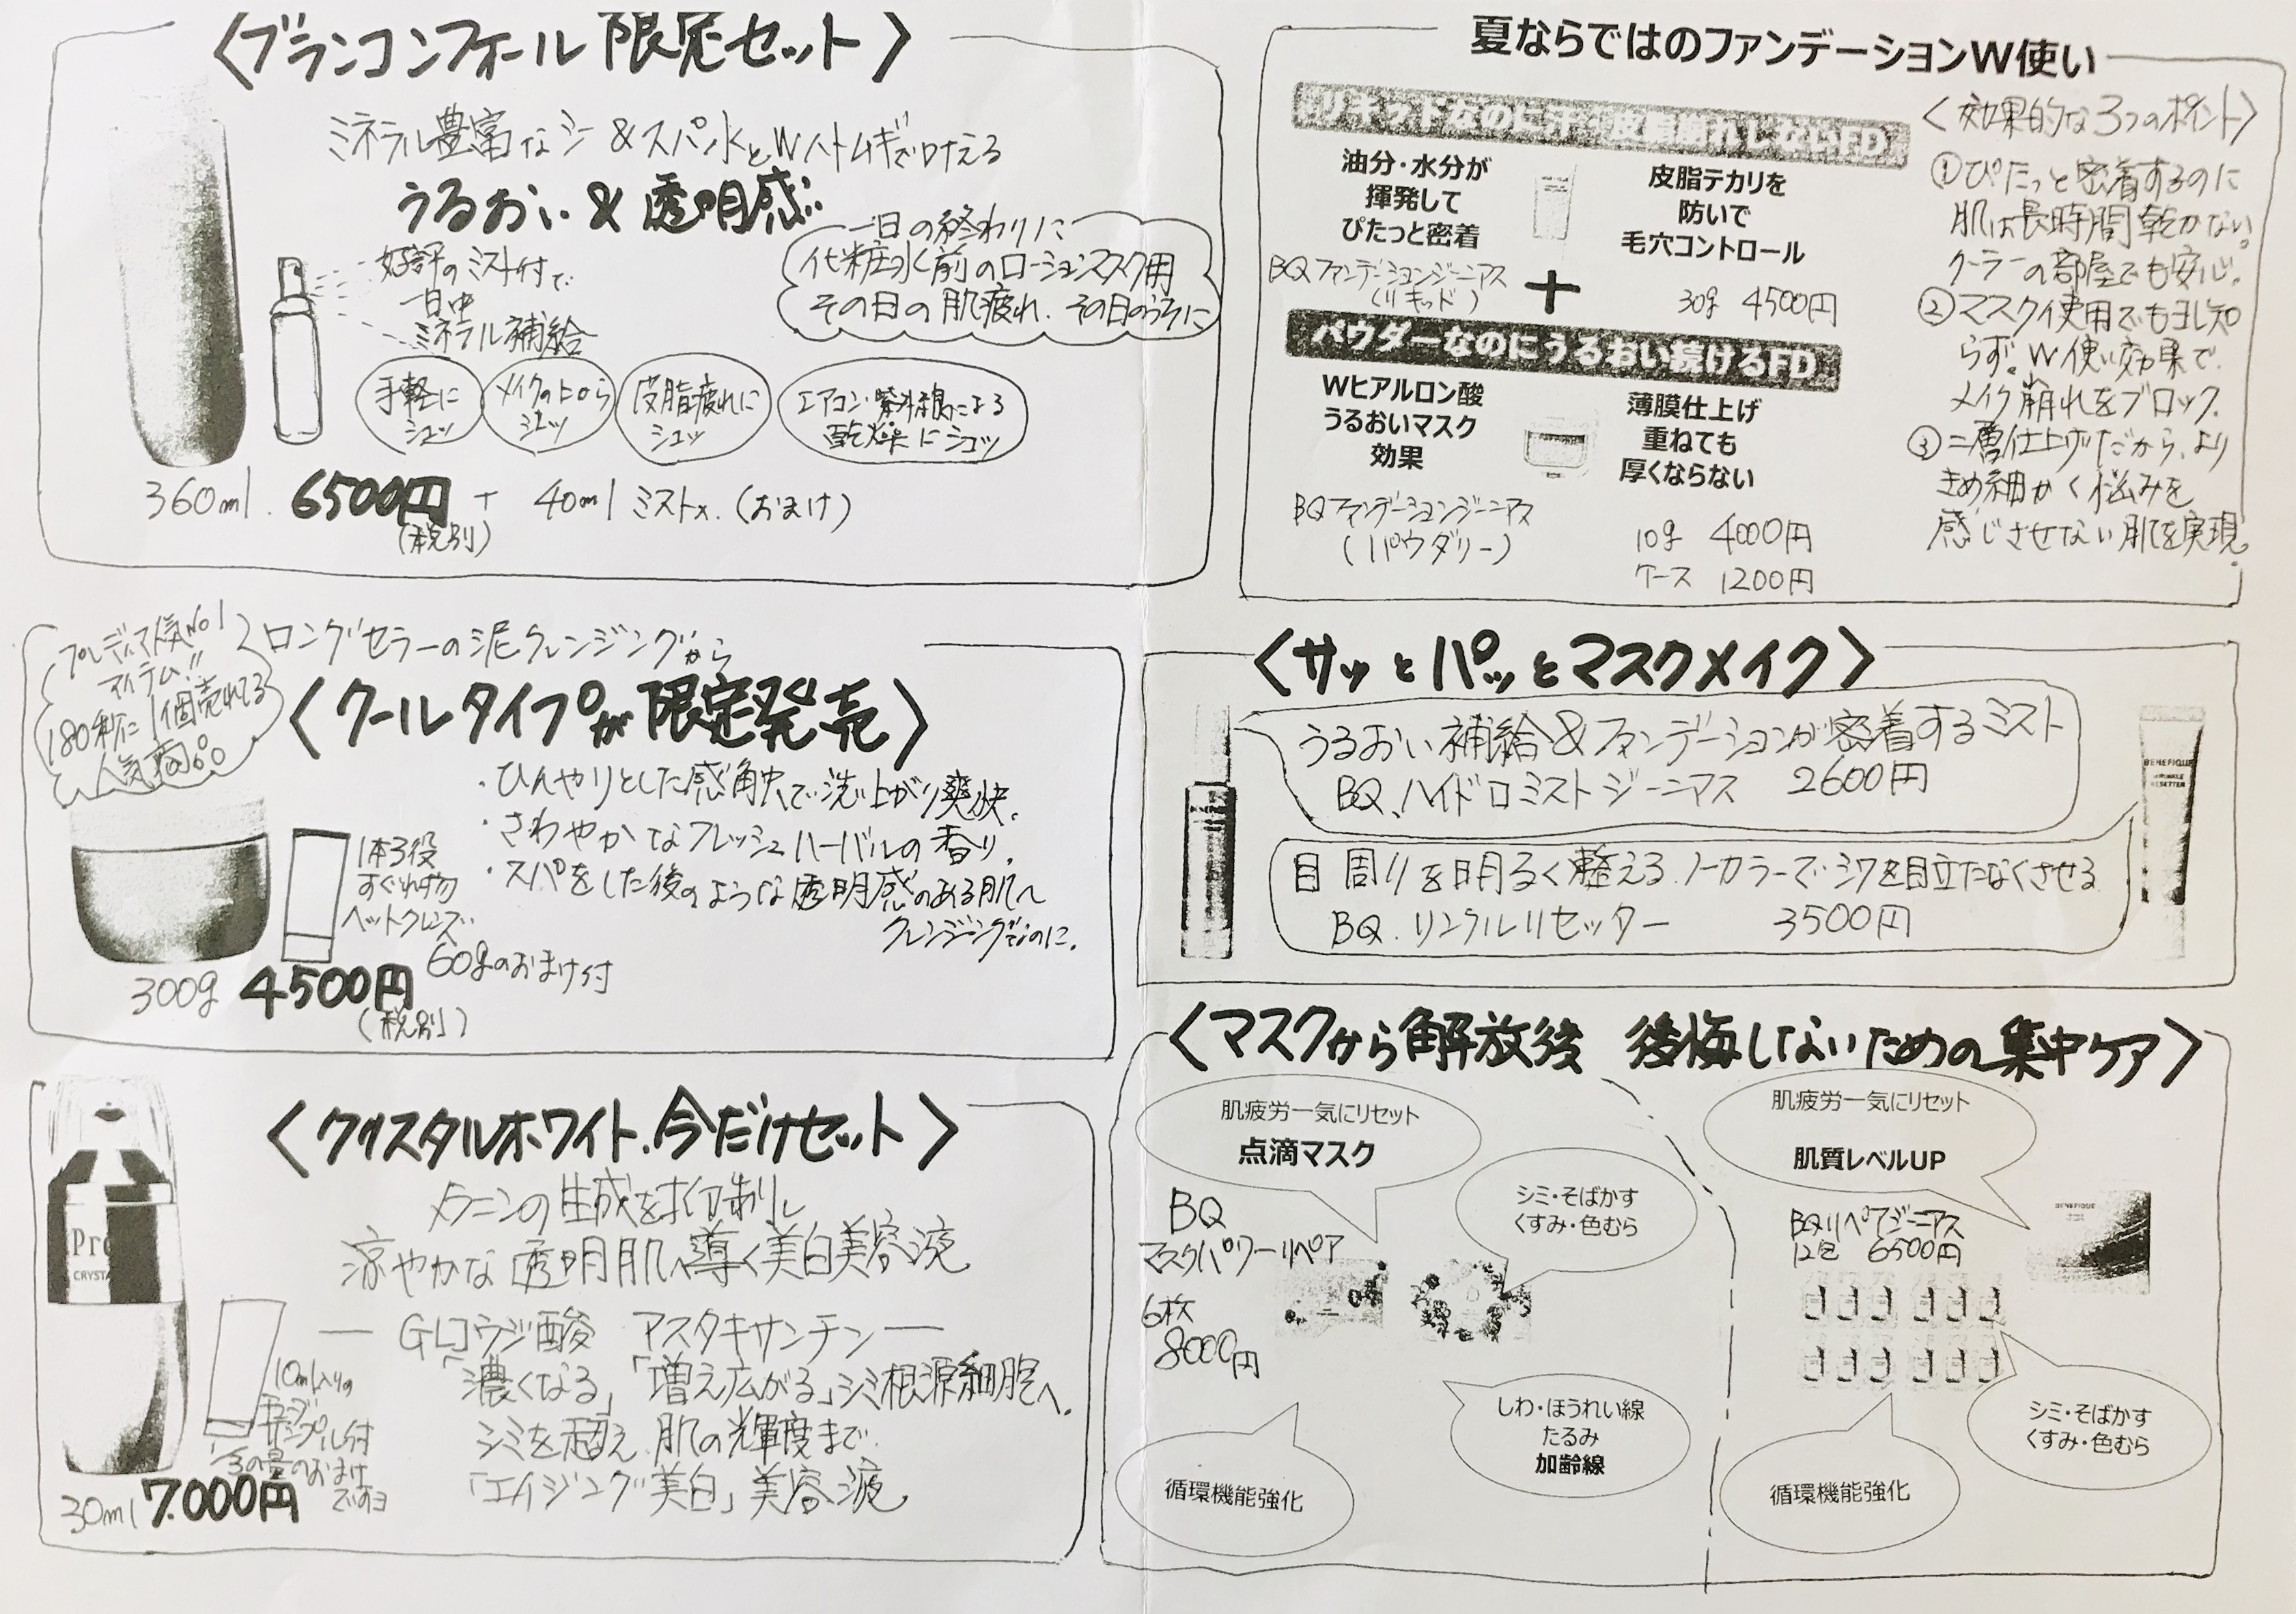 〈ブランコンフォール 限定セット〉
ミネラル豊富なシー&スパ水とWハトムギで叶える
うるおい&透明感
好評のミスト付で
一日中
ミネラル補給
一日の終わりに
化粧水前のローションマスク用
その日の肌疲れ、その日のうちに
手軽に
シュッ
メイクの上から
シュッ
皮脂疲れに
シュッ
エアコン・紫外線による
乾燥にシュッ
360ml 6500円 + 40ml ミスト (おまけ)
(税別)
プレディア人気No1
アイテム!!
180秒に1個売れてる
人気商品
ロングセラーの泥クレンジングから
〈クールタイプが限定発売〉
・ひんやりとした感触で洗い上がり爽快。
・さわやかなフレッシュハーバルの香り。
・スパをした後のような透明感のある肌へ
クレンジングなのに。
1本3役
すぐれ物
ヘッドクレンズ
60gのおまけ付
300g 4500円
(税別)
〈クリスタルホワイト.今だけセット〉
メラニンの生成を抑制し
涼やかな透明肌へ導く美白美容液
― GLコウジ酸 アスタキサンチン ―
「濃くなる」「増え広がる」シミ根源細胞へ。
シミを超え 肌の輝度まで
「エイジング美白」美容液
Pre
CRYSTA
10ml入りの
サンプル付
1/3の量のおまけ
ですヨ
30ml 7.000円
夏ならではのファンデーションW使い
リキッドなのに汗・皮脂崩れしないFD
油分・水分が
揮発して
ぴたっと密着
皮脂テカリを
防いで
毛穴コントロール
BQファンデーションジーニアス
(リキッド)
30g 4500円
+
パウダーなのにうるおい続けるFD
Wヒアルロン酸
うるおいマスク
効果
薄膜仕上げ
重ねても
厚くならない
BQファンデーションジーニアス
(パウダリー)
10g 4000円
ケース 1200円
〈効果的な3つのポイント〉
①ぴたっと密着するのに
肌は長時間乾かない。
クーラーの部屋でも安心。
②マスク使用でもヨレ知
らず。W使い効果で
メイク崩れをブロック。
③二層仕上げだから、より
きめ細かく悩みを
感じさせない肌を実現。
〈サッとパッとマスクメイク〉
うるおい補給&ファンデーションが密着するミスト
BQ.ハイドロミストジーニアス 2600円
目周りを明るく整える.ノーカラーでシワを目立たなくさせる
BQ.リンクルリセッター 3500円
BENEFIQUE
WRINKLE
RESETTER
〈マスクから解放後 後悔しないための集中ケア〉
肌疲労一気にリセット
点滴マスク
シミ・そばかす
くすみ・色むら
BQ
マスクパワーリペア
6枚
8000円
しわ・ほうれい線
たるみ
加齢線
循環機能強化
肌疲労一気にリセット
肌質レベルUP
BQリペアジーニアス
12包 6500円
BENEFIQUE
シミ・そばかす
くすみ・色むら
循環機能強化